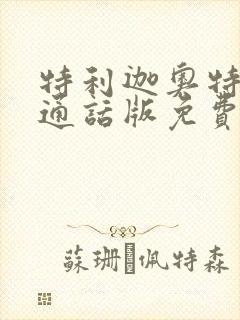 特利迦奧特
通話版免費
蘇珊·佩特森